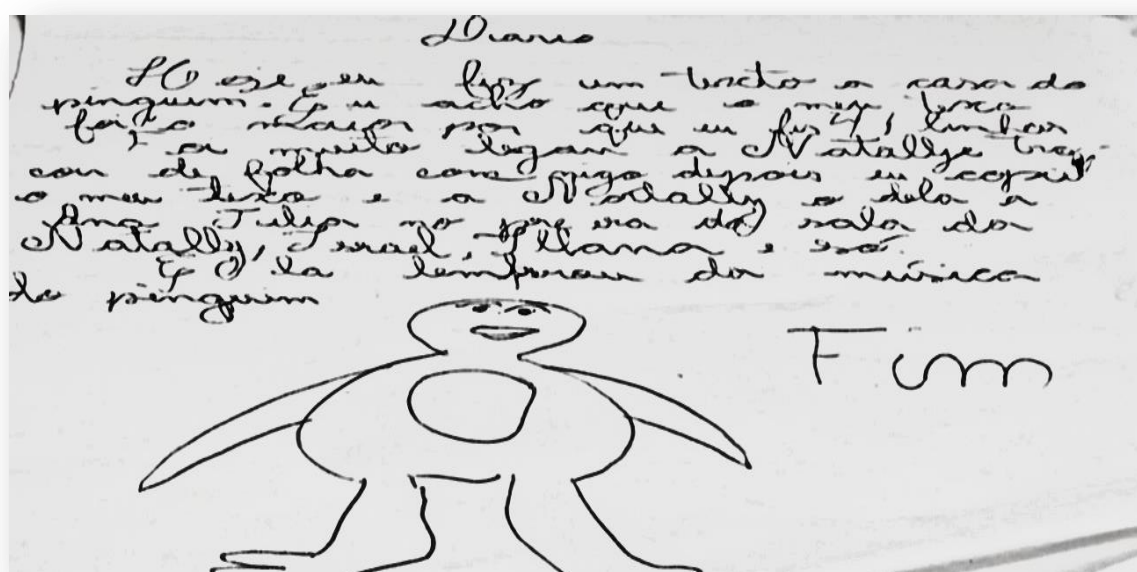 Diario
HO oze eu fiz um texto a casa do
pinguim. Eu acho que o meu texo
foi o maior por que eu fis 4 linhas
a muito legau a Natallye tro
cou de folha com migo depois eu copiei
o meu texo e a Natally o dela a
Ana Julia no da sala da
Natally, Israel, Illana e
E la lembrou da música
do pinguim
Fim